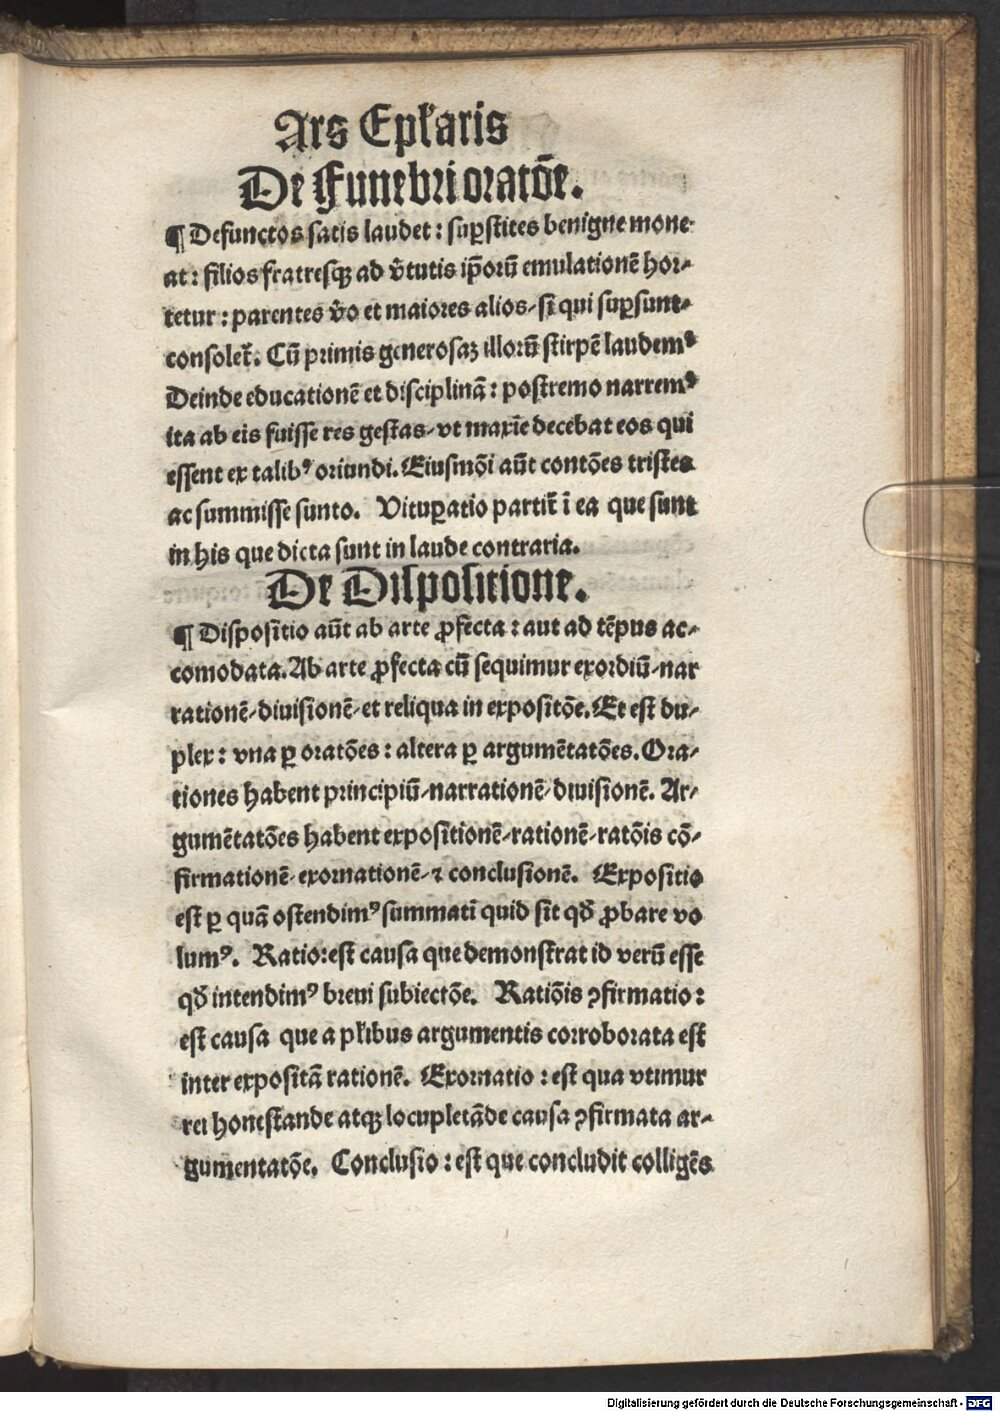 Ars Ep̄laris
De Funebri oratōe.
¶ Defunctos satis laudet: suꝑstites benigne mone-
at: filios fratresqꝫ ad v̄tutis ip̄oꝝ emulationē hor-
tetur: parentes v̄o et maiores alios/si qui suꝑsunt/
consolet̄. Cū primis generosaꝫ illorū stirpē laudemꝰ
Deinde educationē et disciplinā: postremo narremꝰ
ita ab eis fuisse res gestas/vt maxīe decebat eos qui
essent ex talibꝰ oriundi. Eiusmōi aūt contōes tristes
ac summisse sunto. Vituꝑatio partit̄ ī ea que sunt
in his que dicta sunt in laude contraria.
De Dispositione.
¶ Dispositio aūt ab arte ꝓfecta: aut ad tēpus ac-
comodata. Ab arte ꝓfecta cū sequimur exordiū/nar
rationē/diuisionē/et reliqua in expositōe. Et est du-
plex: vna ꝑ oratōes: altera ꝑ argumētatōes. Ora-
tiones habent principiū/narrationē/diuisionē. Ar-
gumētatōes habent expositionē/rationē/ratōis cō-
firmationē/exornationē/⁊ conclusionē. Expositio
est ꝑ quā ostendimꝰ summatī quid sit qđ ꝓbare vo
lumꝰ. Ratio: est causa que demonstrat id verū esse
qđ intendimꝰ breui subiectōe. Ratiōis ꝯfirmatio:
est causa que a pl̄ibus argumentis corroborata est
inter expositā rationē. Exornatio: est qua vtimur
rei honestande atqꝫ locupletāde causa ꝯfirmata ar-
gumentatōe. Conclusio: est que concludit colligēs
Digitalisierung gefördert durch die Deutsche Forschungsgemeinschaft - DFG